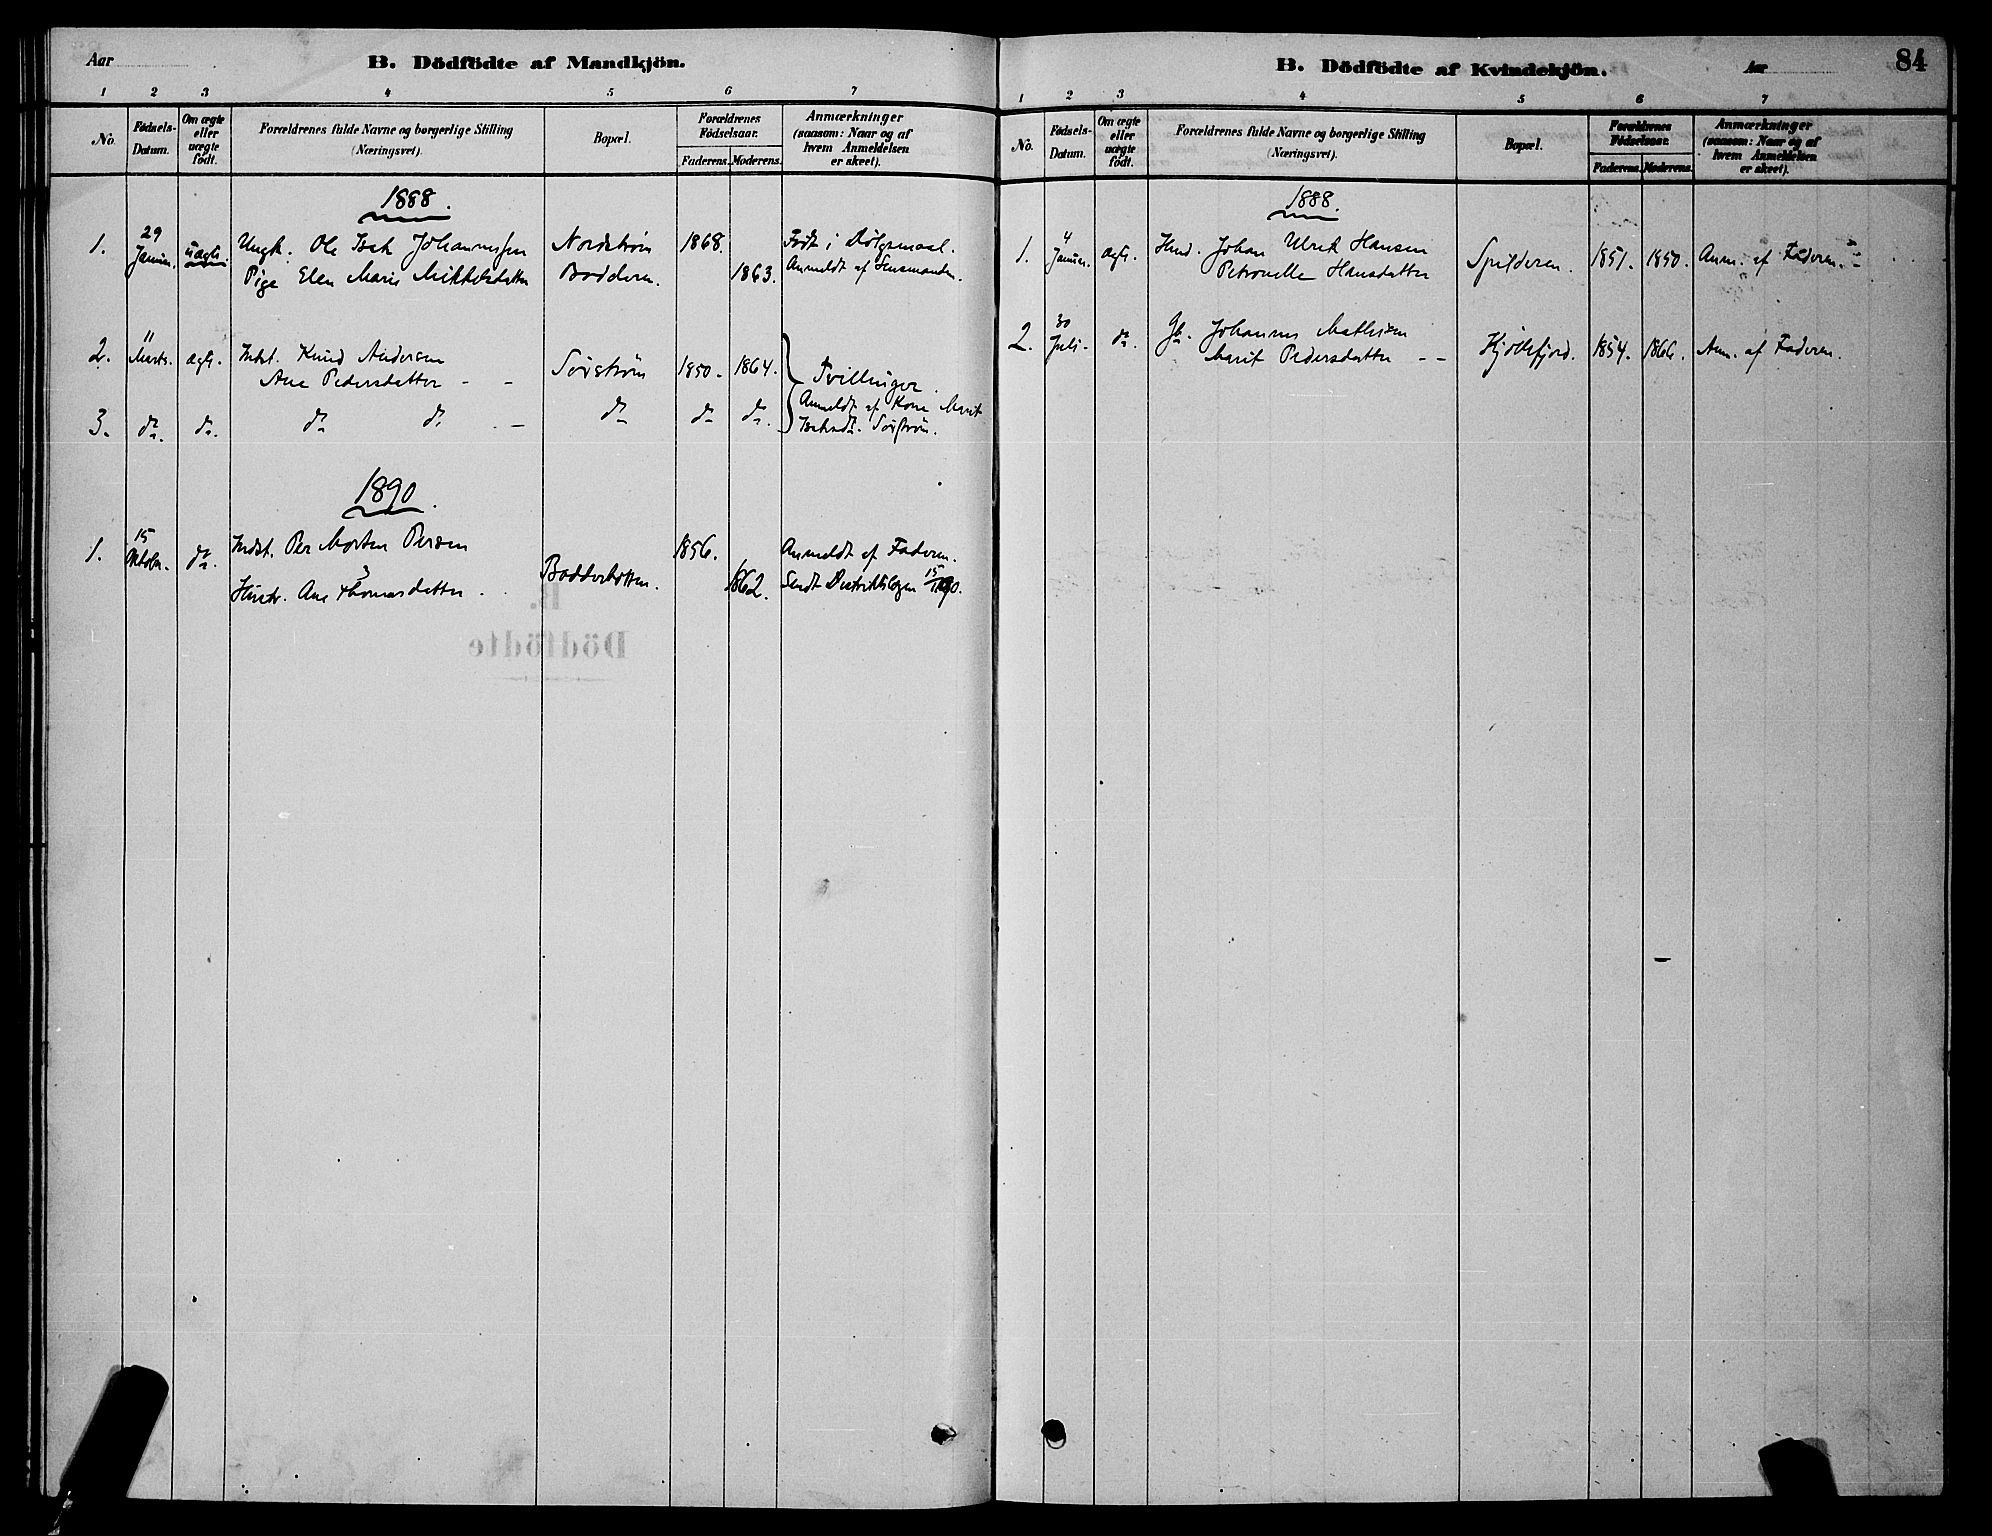 Aar
B. Dödfödte af Mandkjön.
1 2 3 4 5 6 7
No. Fødsels-Datum. Om ægte eller uægte født. Forældrenes fulde Navne og borgerlige Stilling (Næringsvei). Bopæl. Forældrenes Fødselsaar. Faderens. Moderens. Anmærkninger (saasom: Naar og af hvem Anmeldelsen er skeet).
1888.
1. 29 Januar. uægte. Ungk. Ole Isak Johannessen Nordstrøm 1868. Født i Dølgsmaal.
Pige Elen Marie Mikkelsdatter Badderen. 1863. Anmeldt af Lensmanden.
2. 11 Marts. ægte. Indst. Knud Andersen Sørstrøm 1850. 1864. Tvillinger.
Ane Pedersdatter - -
3. do. do. do do. - do do do. Anmeldt af Kone Marit
Isaksdr. Sørstrøm.
1890.
1. 15 Oktober. do. Indst. Per Morten Persen 1856. Anmeldt af Faderen.
Hustr. Ane Thomasdatter. Badderbotten. 1862. Sendt Distriktslægen
B.
Dödfödte
B. Dödfödte af Kvindekjön.
Aar
84
1 2 3 4 5 6 7
No. Fødsels-Datum. Om ægte eller uægte født. Forældrenes fulde Navne og borgerlige Stilling (Næringsvei). Bopæl. Forældrenes Fødselsaar. Faderens. Moderens. Anmærkninger (saasom: Naar og af hvem Anmeldelsen er skeet).
1888.
1. 4 Januar. ægte. Johan Ulrik Hansen
Petronelle Hansdatter Spilderen. 1851. 1850. Anm. af Faderen.
2. 30 Juli do. Johannes Mathisen
Marit Pedersdatter - - Kjøllefjord. 1854. 1866. Anm. af Faderen.